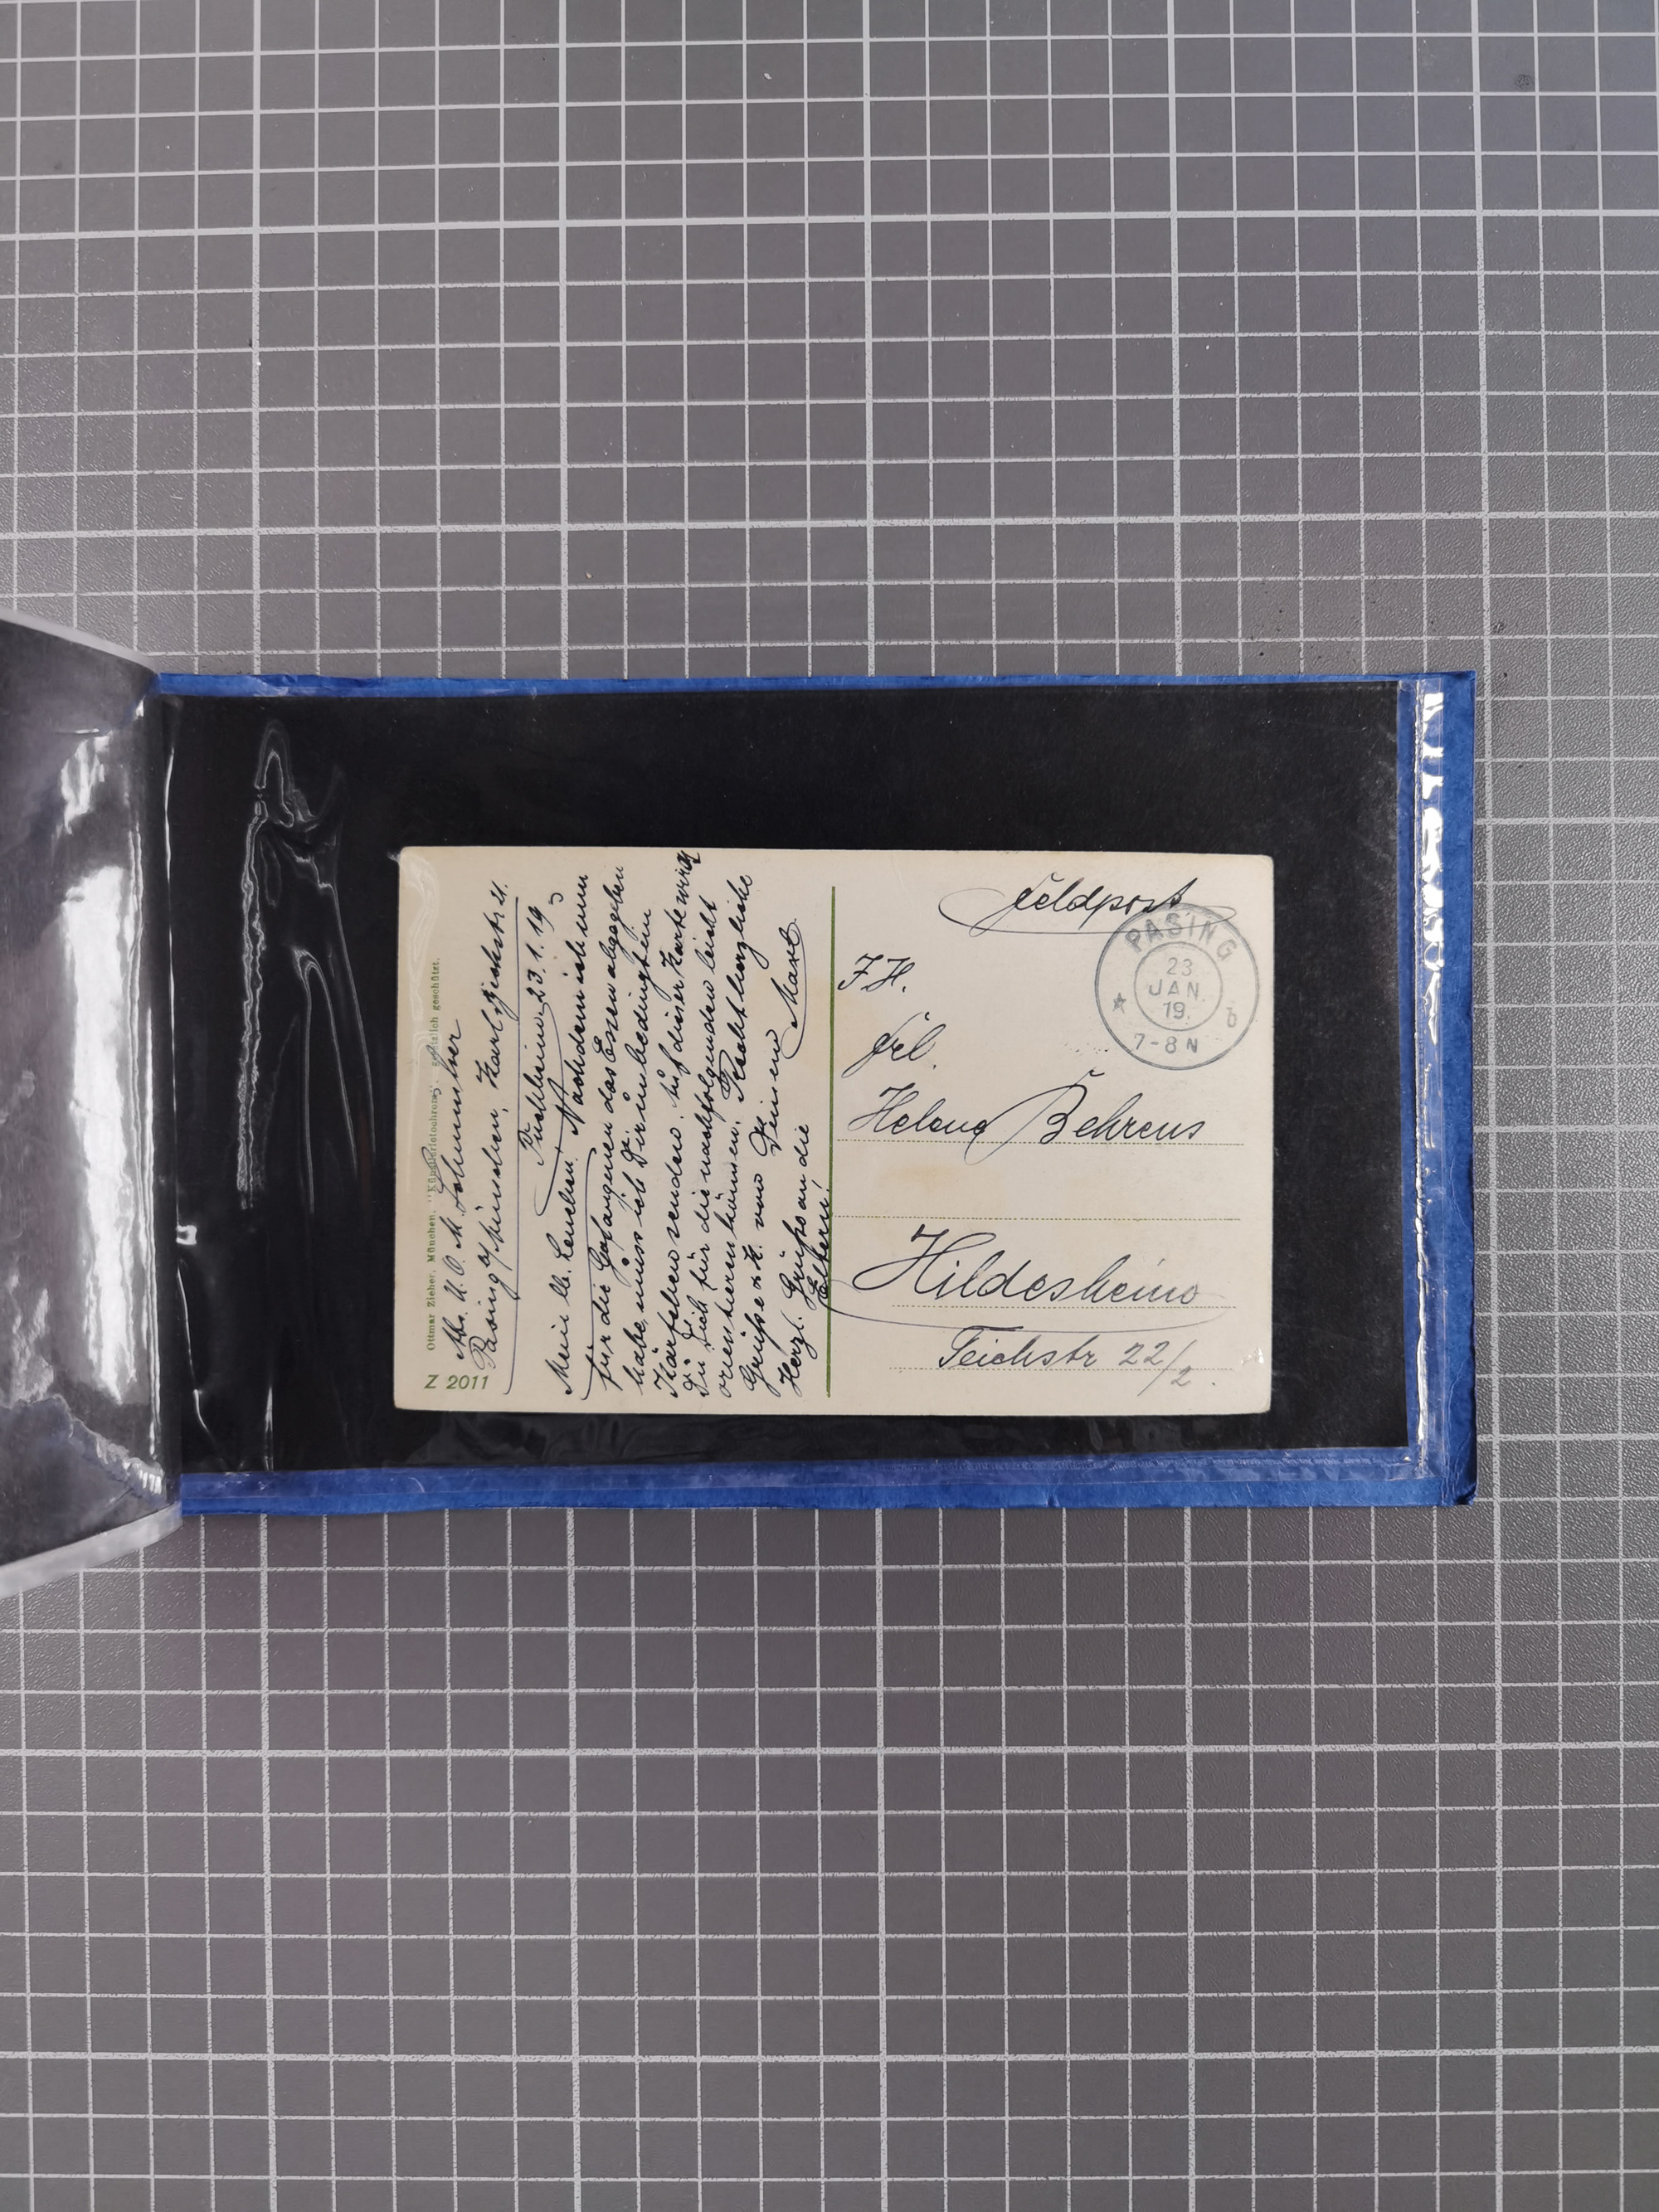 Z 2011
Ottmar Zieher, München. "Künstlerletochromy", gesetzlich geschützt.
Abs. U. O. M.
Pasing b/München,
Puchheim, 23.1.19
Mein lb. Lenchen! Nachdem ich nun
für die Gefangenen das Essen abgegeben
habe, muss ich Dir unbedingt ein
Kärtchen senden. Auf dieser Karte wirst
Du Dich für die nachfolgenden leicht
orientieren können. Recht herzliche
Grüße u. K. von Deinem Max
Herzl. Grüße an die
Eltern!
Feldpost
PASING
23
JAN.
19.
7-8 N
b
F. H.
Frl.
Helene Behrens
Hildesheim
Teichstr 22/2.